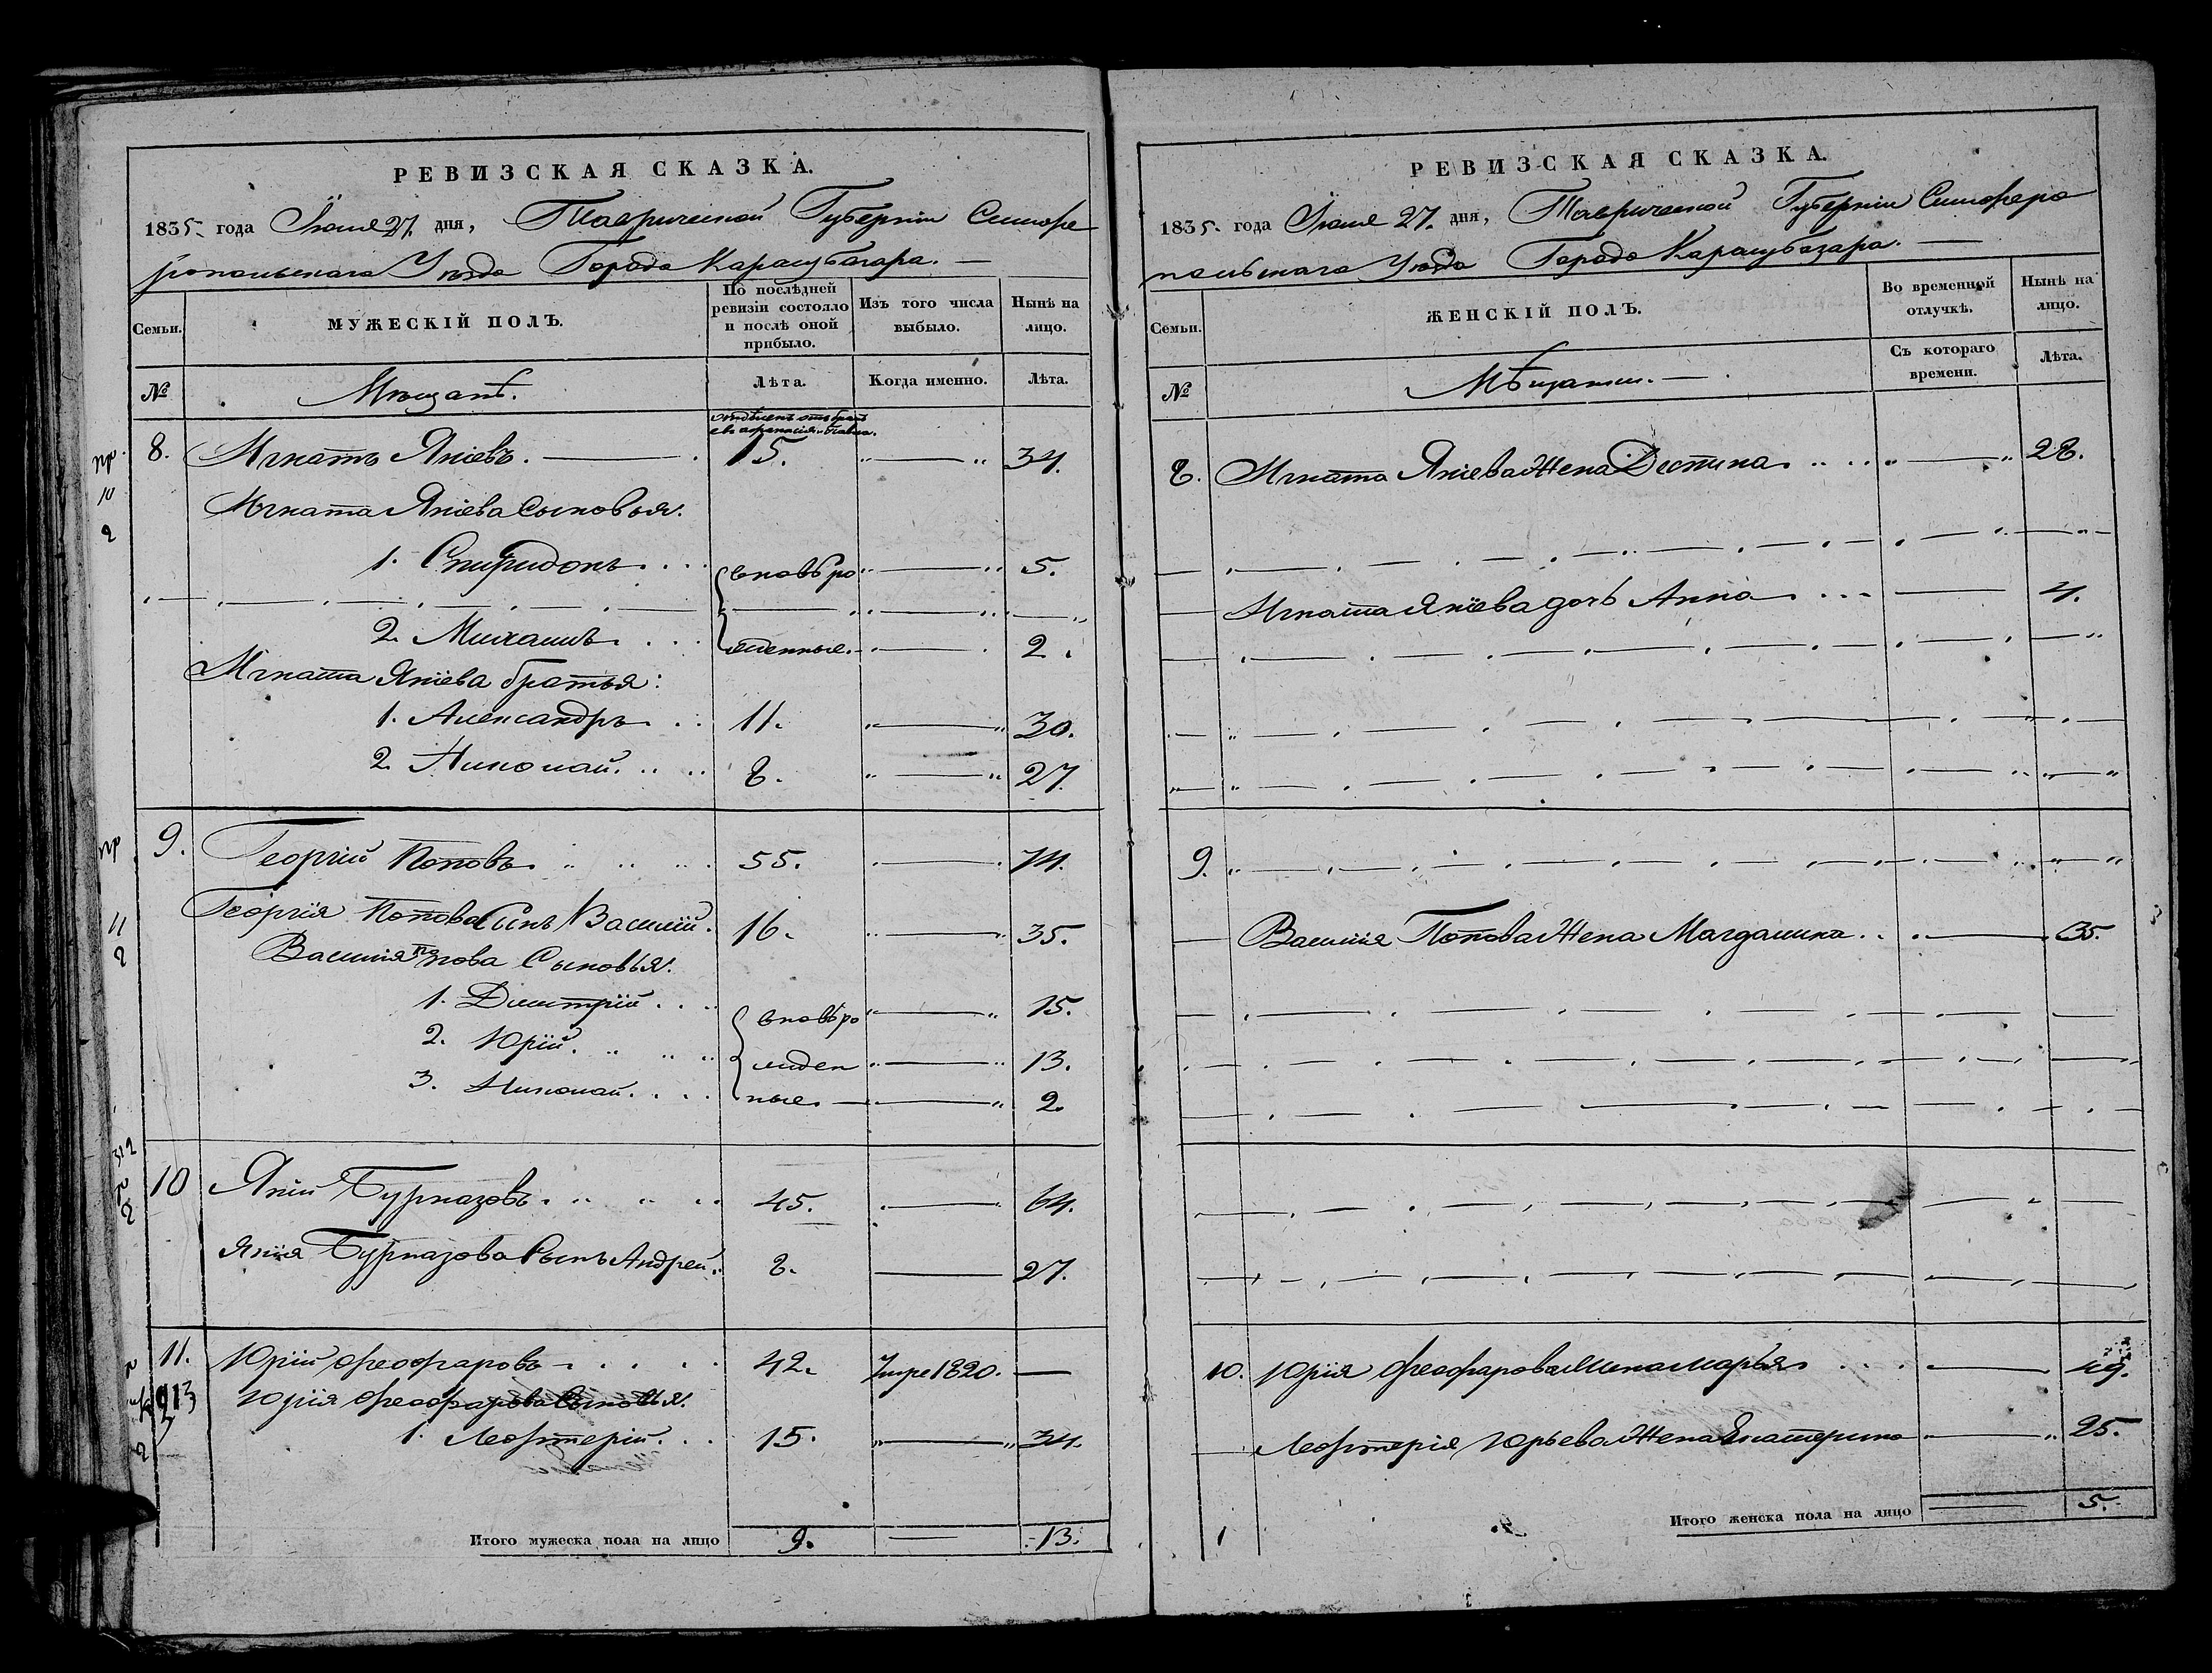 РЕВИЗСКАЯ СКАЗКА.
1835 года Іюня 27. дня, Таврической Губерніи Симфе
ропольскаго Уѣзда Города Карасубазара. —
Семьи.
МУЖЕСКІЙ ПОЛЪ.
По послѣдней ревизіи состояло и послѣ оной прибыло.
Изъ того числа выбыло.
Нынѣ на лицо.
№
Мѣщанѣ.
Лѣта.
Когда именно.
Лѣта.
8. Игнатъ Яніевъ. 15. 34.
Игната Яніева Сыновья.
1. Спиридонъ вновь ро 5.
2. Михаилъ жденные. 2.
Игната Яніева братья:
1. Александръ 11. 30.
2. Николай 8. 27.
9. Георгій Поповъ 55. 74.
Георгія Попова Сынъ Василій. 16. 35.
Василія Попова Сыновья.
1. Дмитрій вновь ро 15.
2. Юрій жден 13.
3. Николай ные 2.
10 Яній Бурназовъ 45. 64.
Янія Бурназова Сынъ Андрей 8. 27.
11. Юрій Феофаровъ 42. Умре 1820. —
Юрія Феофарова Сыновья.
1. Лефтерій 15. 34.
Итого мужеска пола на лицо 9. — 13.
РЕВИЗСКАЯ СКАЗКА.
1835. года Іюня 27. дня, Таврической Губерніи Симферо
польскаго Уѣзда Города Карасубазара. —
Семьи.
ЖЕНСКІЙ ПОЛЪ.
Во временной отлучкѣ.
Нынѣ на лицо.
№
Мѣщанки. —
Съ котораго времени.
Лѣта.
8. Игната Яніева Жена Деспина 28.
Игната Яніева дочь Анна 4.
9.
Василія Попова Жена Магдалина 35.
10. Юрія Феофарова Жена Марья 49.
Лефтерія Юрьева Жена Екатерина 25.
Итого женска пола на лицо 5.